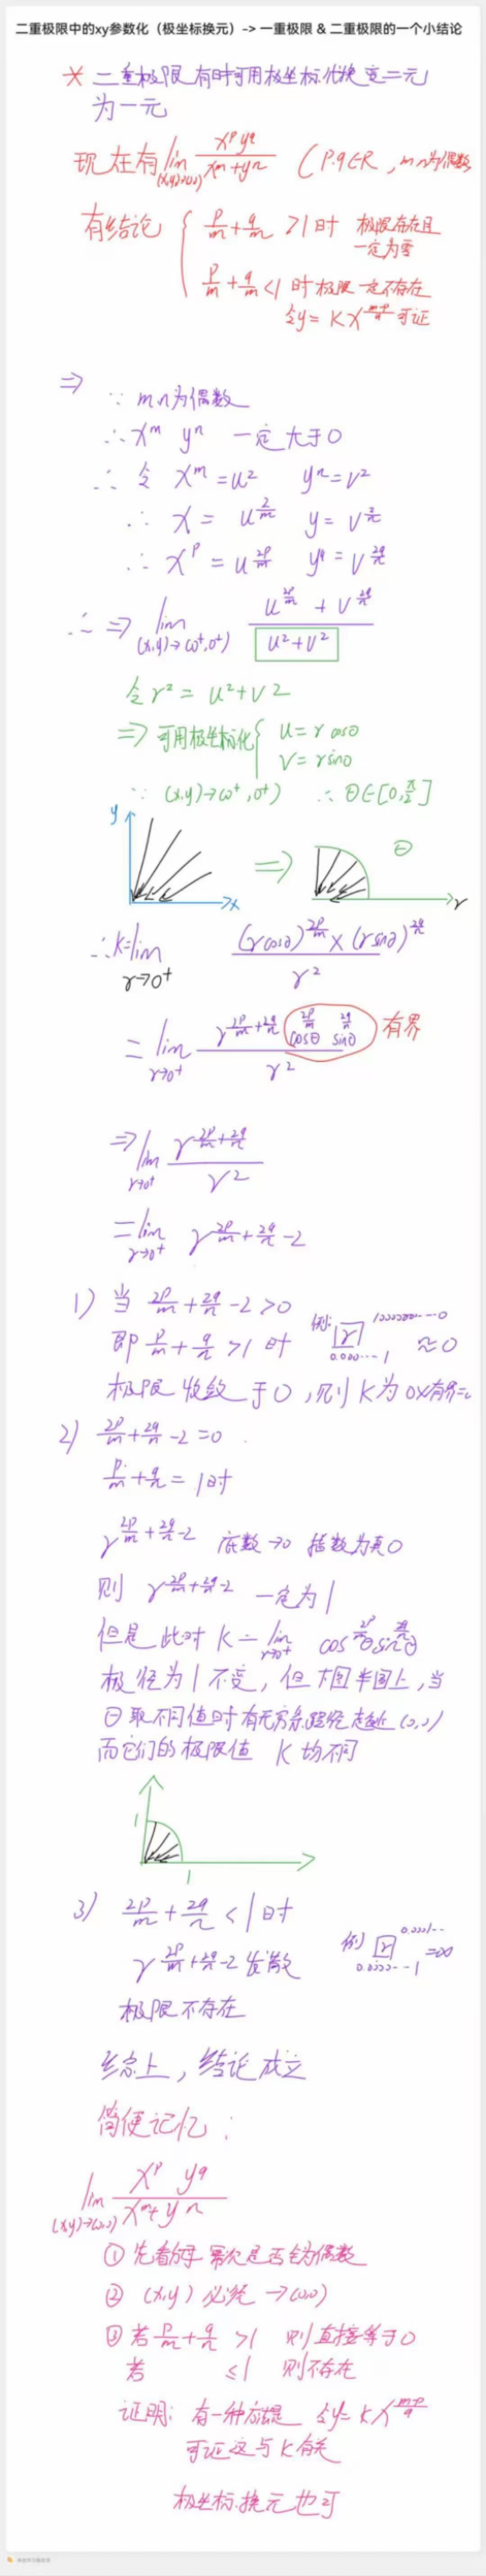 二重极限中的xy参数化（极坐标换元）-> 一重极限 & 二重极限的一个小结论
* 二重极限有时可用极坐标代换 变二元
为一元
现在有 lim (x,y)→(0,0) x^p y^q / x^m+y^n (p.q∈R , m n为偶数
有结论 { p/m + q/n >1时 极限存在且
一定为零
p/m + q/n <1 时极限一定不存在
令y= Kx^(m-p/q) 可证
⇒ ∵ m n为偶数
∴ x^m y^n 一定大于0
∴ 令 x^m = u² y^n = v²
∴ x = u^(2/m) y = v^(2/n)
∴ x^p = u^(2p/m) y^q = v^(2q/n)
∴ ⇒ lim (x,y)→(0⁺,0⁺) u^(2p/m) + v^(2q/n) / u²+v²
令 r² = u²+v2
⇒ 可用极坐标化 { u = r cosθ
v = r sinθ
∵ (x,y)→(0⁺,0⁺) ∴ θ∈[0,π/2]
y x ⇒ θ r
∴ K= lim r→0⁺ (r cosθ)^(2p/m) × (r sinθ)^(2q/n) / r²
= lim r→0⁺ r^(2p/m+2q/n) cosθ^(2p/m) sinθ^(2q/n) / r² 有界
⇒ lim r→0⁺ r^(2p/m+2q/n) / r²
= lim r→0⁺ r^(2p/m+2q/n-2)
1) 当 2p/m + 2q/n -2 >0
即 p/m + q/n >1 时
例: r 0.000…1 ≈0
极限收敛于0 , 则 K为 0×有界=0
2) 2p/m + 2q/n -2 =0
p/m + q/n = 1时
r^(2p/m+2q/n-2) 底数→0 指数为真0
则 r^(2p/m+2q/n-2) 一定为1
但是此时 K = lim r→0⁺ cos^(2p/m)θ sin^(2q/n)θ
极径为1不变 , 但 圆上 , 当
θ取不同值时有无穷条路径趋近 (0,0)
而它们的极限值 K均不同
1
1
3) 2p/m + 2q/n <1时
r^(2p/m+2q/n-2) 发散
例) r =∞
极限不存在
综上 , 结论成立
简便记忆 :
lim (x,y)→(0,0) x^p y^q / x^m+y^n
① 先看分母 幂次是否全为偶数
② (x,y) 必须 →(0,0)
③ 若 p/m + q/n >1 则直接等于0
若 ≤1 则不存在
证明: 有一种方法是 令y= Kx^(m-p/q)
可证这与K有关
极坐标换元也可